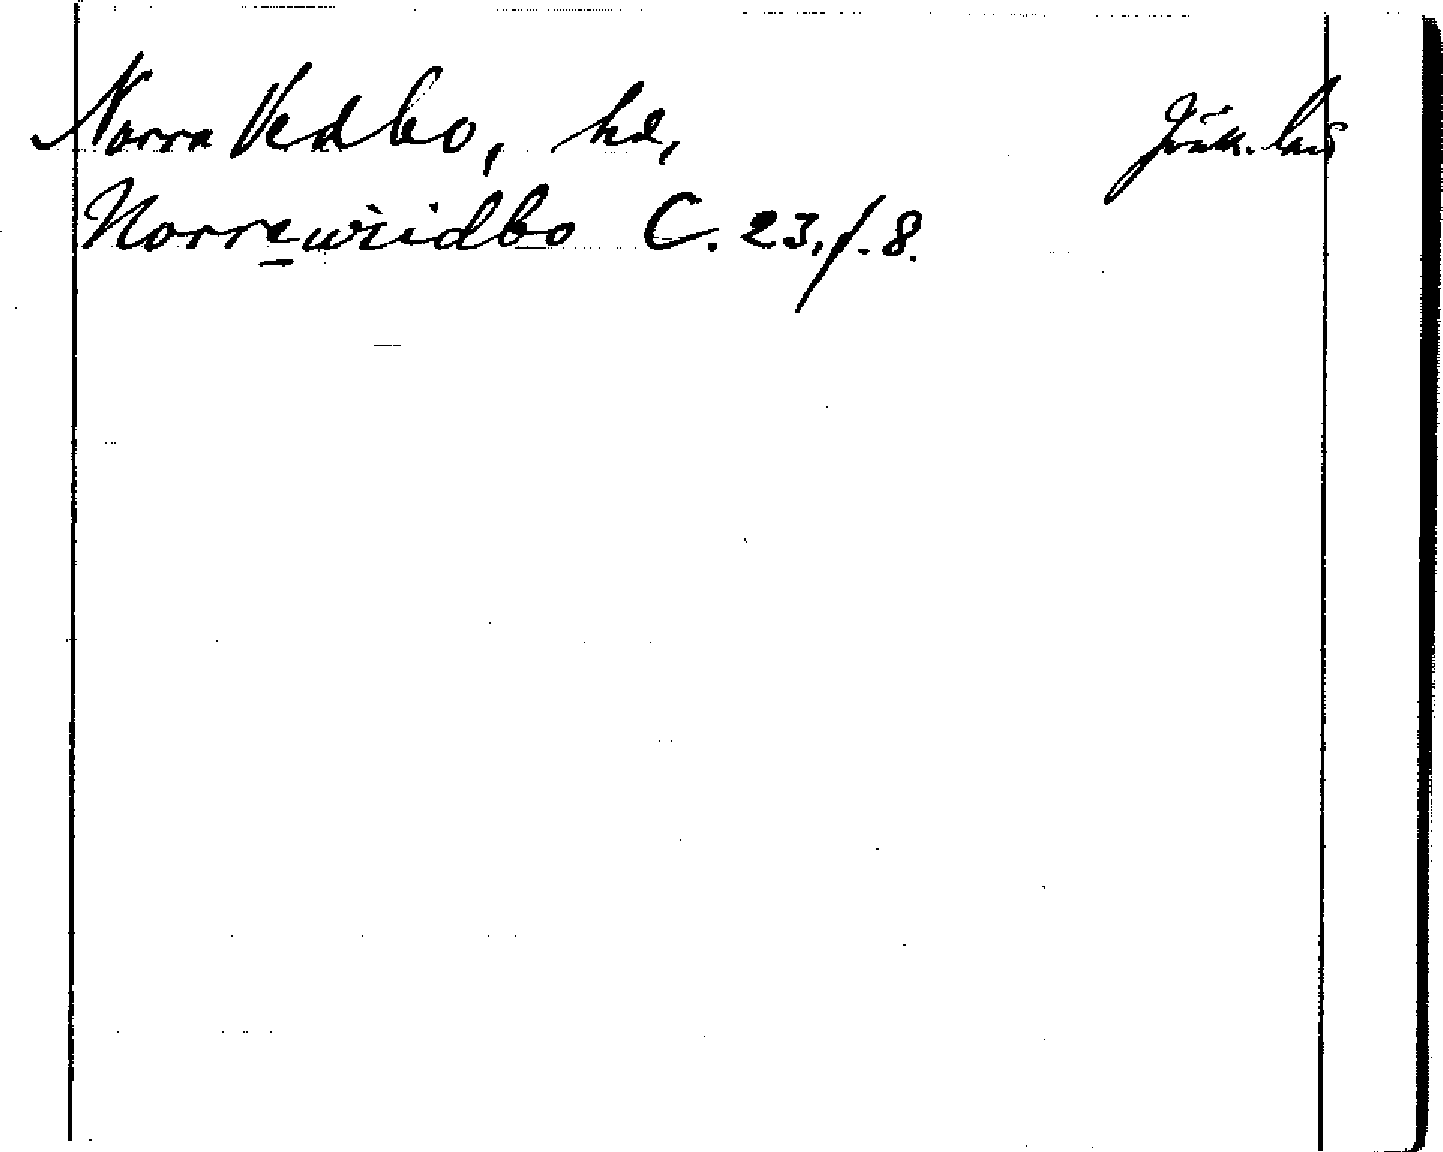 Norra Vedbo, hd, Jönk. län
Norrewiidbo C. 23, f. 8.